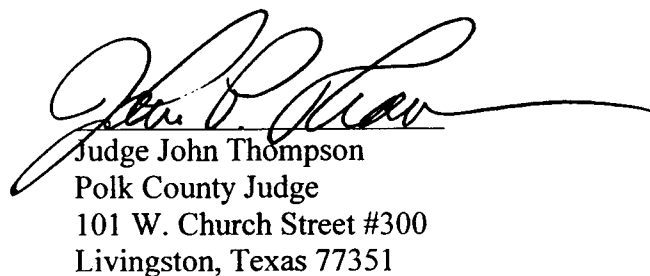 John P. Thom
Judge John Thompson
Polk County Judge
101 W. Church Street #300
Livingston, Texas 77351